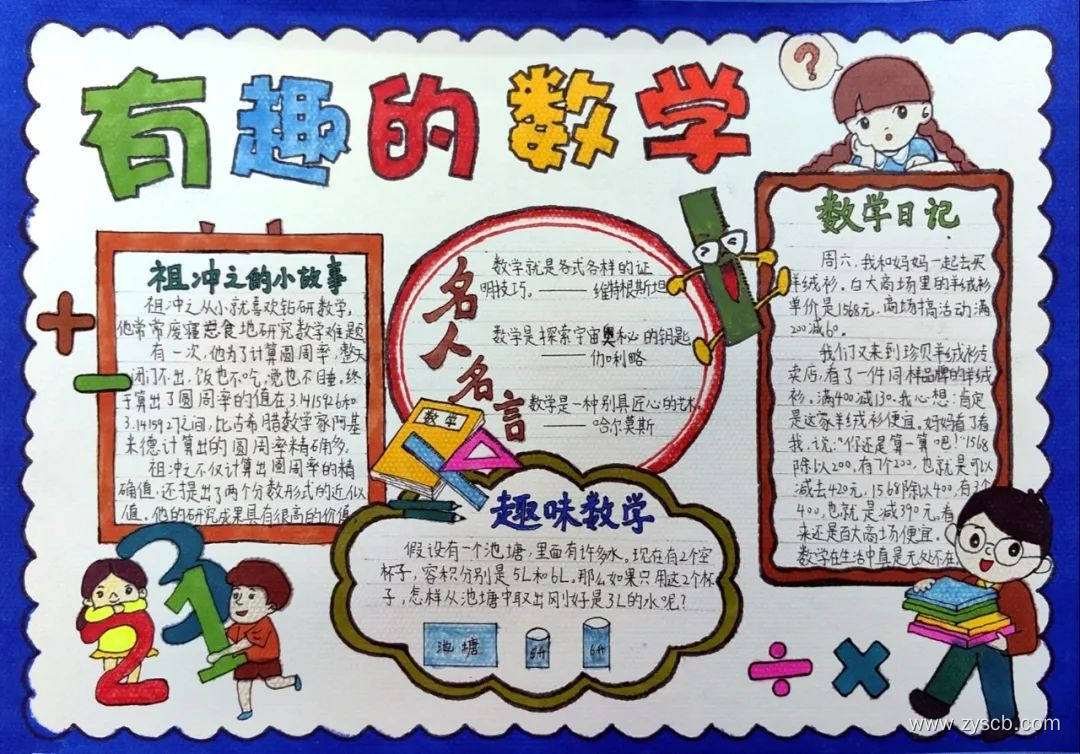 有趣的数学
?
祖冲之的小故事
祖冲之从小就喜欢钻研数学,
他常常废寝忘食地研究数学难题
有一次,他为了计算圆周率,整天
闭门不出,饭也不吃,觉也不睡.终
于算出了圆周率的值在3.1415926和
3.1415927之间,比古希腊数学家阿基
米德计算出的圆周率精确多.
祖冲之不仅计算出圆周率的精
确值.还提出了两个分数形式的近似
值。他的研究成果具有很高的价值
名人名言
数学就是各式各样的证
明技巧。——维特根斯坦
数学是探索宇宙奥秘的钥匙
——伽利略
数学是一种别具匠心的艺术
——哈尔莫斯
数学
趣味数学
假设有一个池塘,里面有许多水。现在有2个空
杯子,容积分别是5L和6L。那么如果只用这2个杯
子,怎样从池塘中取出刚好是3L的水呢?
池塘
5升
6升
数学日记
周六,我和妈妈一起去买
羊绒衫。百大商场里的羊绒衫
单价是1568元,商场搞活动满
200减60。
我们又来到珍贝羊绒衫专
卖店,看了一件同样品牌的羊绒
衫。满400减130.我心想:肯定
是这家羊绒衫便宜。妈妈看了看
我,说:"你还是算一算吧!"1568
除以200,有7个200,也就是可以
减去420元,1568除以400,有3个
400,也就是减390元,看
来还是百大商场便宜。
数学在生活中真是无处不在
3
2
1
www.zyscb.com